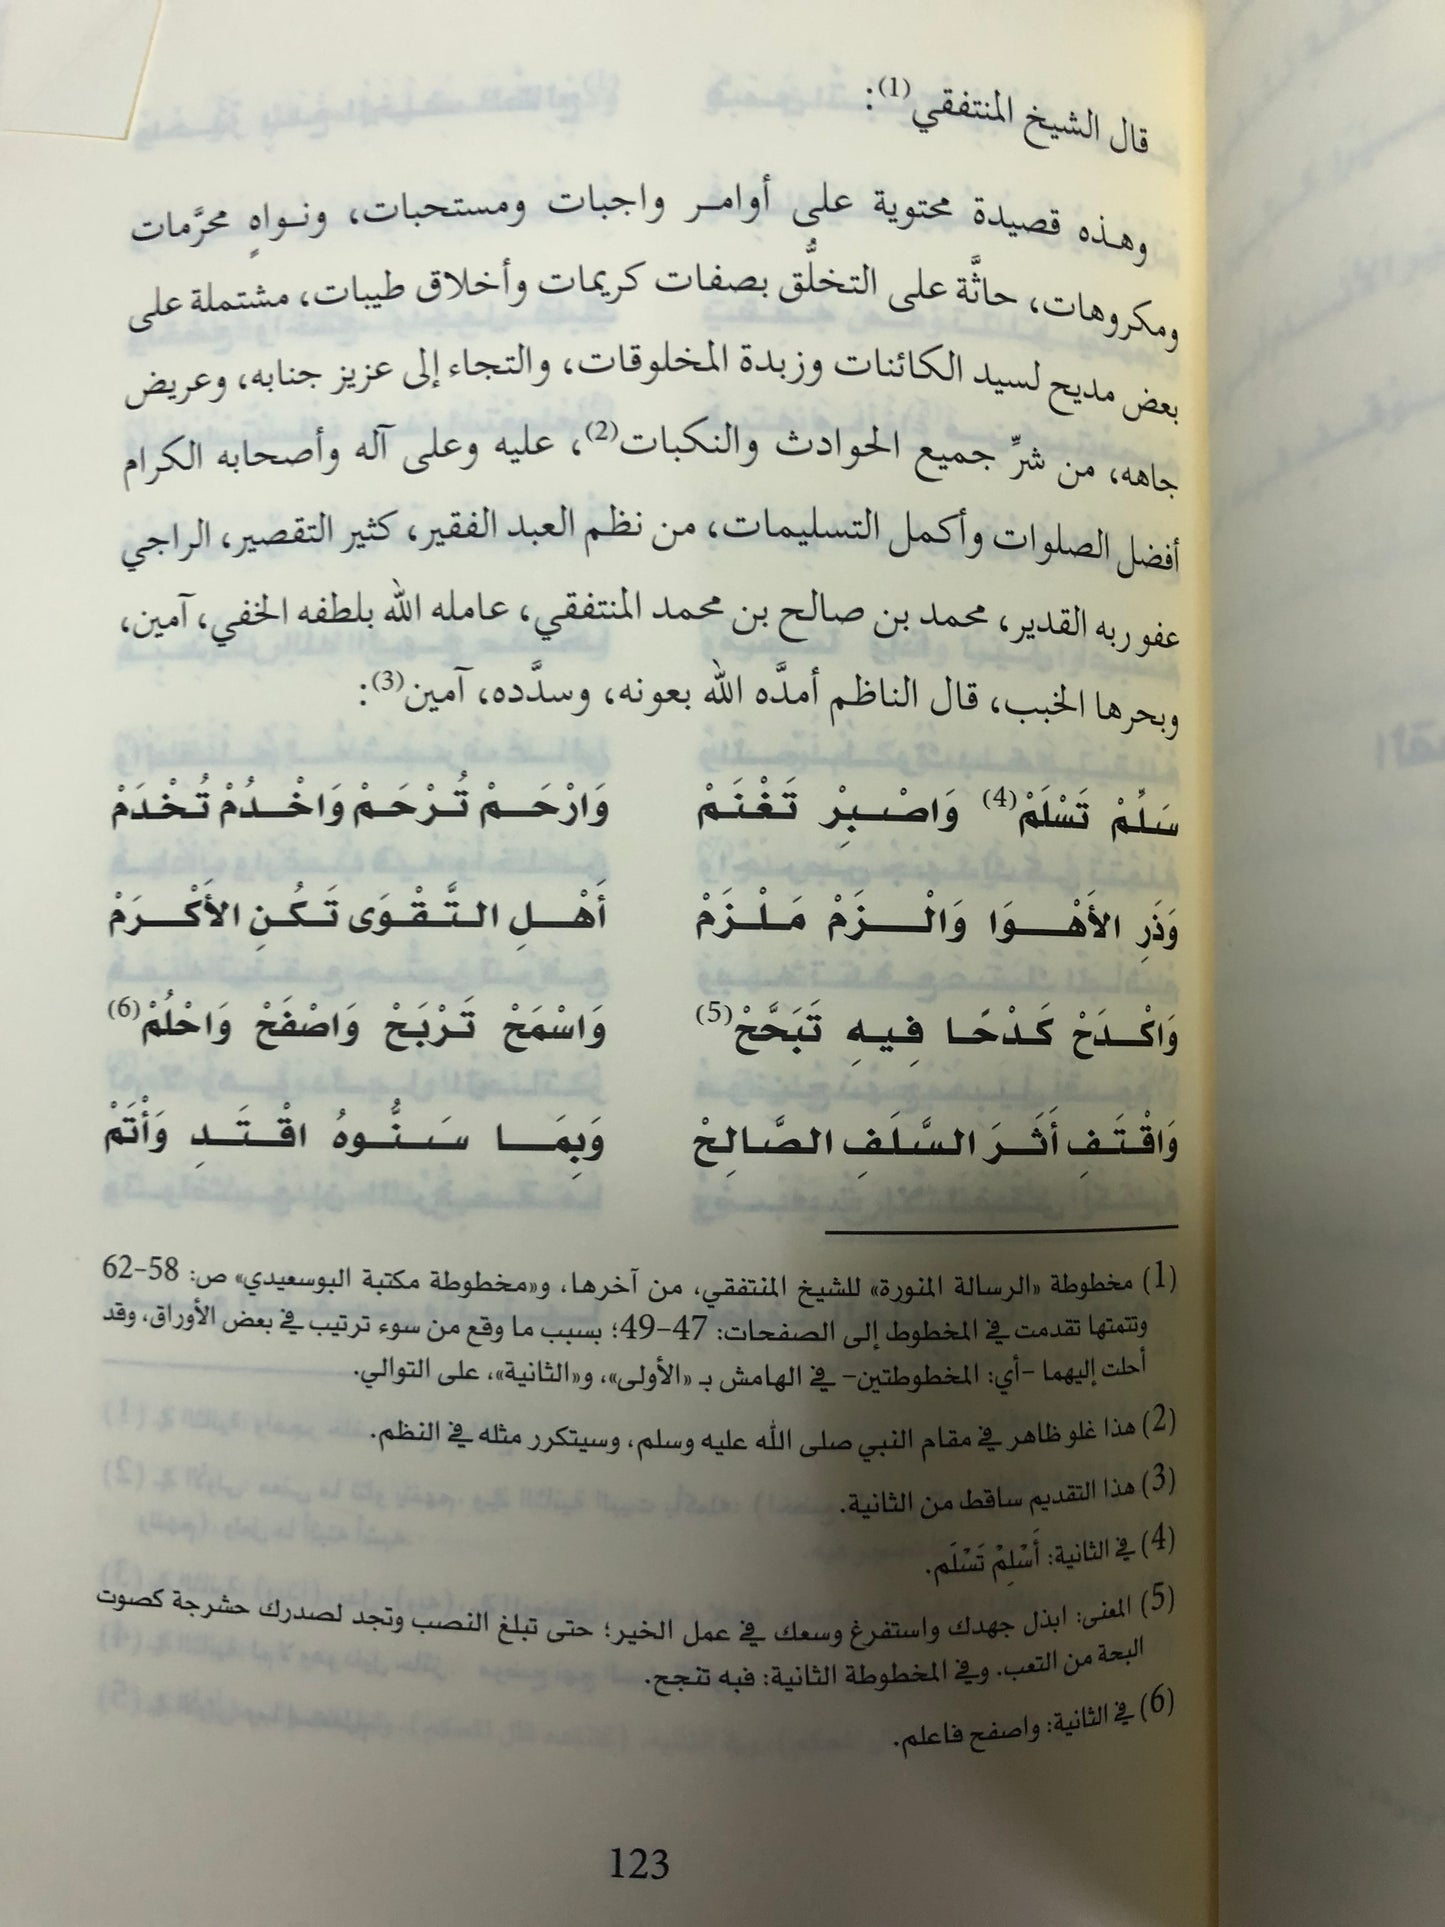 قال الشيخ المنتفقي(1):
وهذه قصيدة محتوية على أوامر واجبات ومستحبات، ونواهٍ محرَّمات
ومكروهات، حاثَّة على التخلُّق بصفات كريمات وأخلاق طيبات، مشتملة على
بعض مديح لسيد الكائنات وزبدة المخلوقات، والتجاء إلى عزيز جنابه، وعريض
جاهه، من شرِّ جميع الحوادث والنكبات(2)، عليه وعلى آله وأصحابه الكرام
أفضل الصلوات وأكمل التسليمات، من نظم العبد الفقير، كثير التقصير، الراجي
عفو ربه القدير، محمد بن صالح بن محمد المنتفقي، عامله الله بلطفه الخفي، آمين،
وبحرها الخبب، قال الناظم أمدَّه الله بعونه، وسدَّده، آمين(3):
سَلِّمْ تَسْلَمْ(4) وَاصْبِرْ تَغْنَمْ وَارْحَمْ تُرْحَمْ وَاخْدُمْ تُخْدَمْ
وَذَرِ الأَهْوَا وَالْزَمْ مَلْزَمْ أَهْلِ التَّقْوَى تَكُنِ الأَكْرَمْ
وَاكْدَحْ كَدْحًا فِيهِ تَبَحَّحْ(5) وَاسْمَحْ تَرْبَحْ وَاصْفَحْ وَاحْلُمْ(6)
وَاقْتَفِ أَثَرَ السَّلَفِ الصَّالِحْ وَبِمَا سَنُّوهُ اقْتَدِ وَأْتَمْ
(1) مخطوطة «الرسالة المنورة» للشيخ المنتفقي، من آخرها، و«مخطوطة مكتبة البوسعيدي» ص: 58-62
وتتمتها تقدمت في المخطوط إلى الصفحات: 47-49؛ بسبب ما وقع من سوء ترتيب في بعض الأوراق، وقد
أحلت إليهما -أي: المخطوطتين- في الهامش بـ «الأولى»، و«الثانية»، على التوالي.
(2) هذا غلو ظاهر في مقام النبي صلى الله عليه وسلم، وسيتكرر مثله في النظم.
(3) هذا التقديم ساقط من الثانية.
(4) في الثانية: أَسْلِمْ تَسْلَم.
(5) المعنى: ابذل جهدك واستفرغ وسعك في عمل الخير؛ حتى تبلغ النصب وتجد لصدرك حشرجة كصوت
البحة من التعب. وفي المخطوطة الثانية: فبه تنجح.
(6) في الثانية: واصفح فاعلم.
123